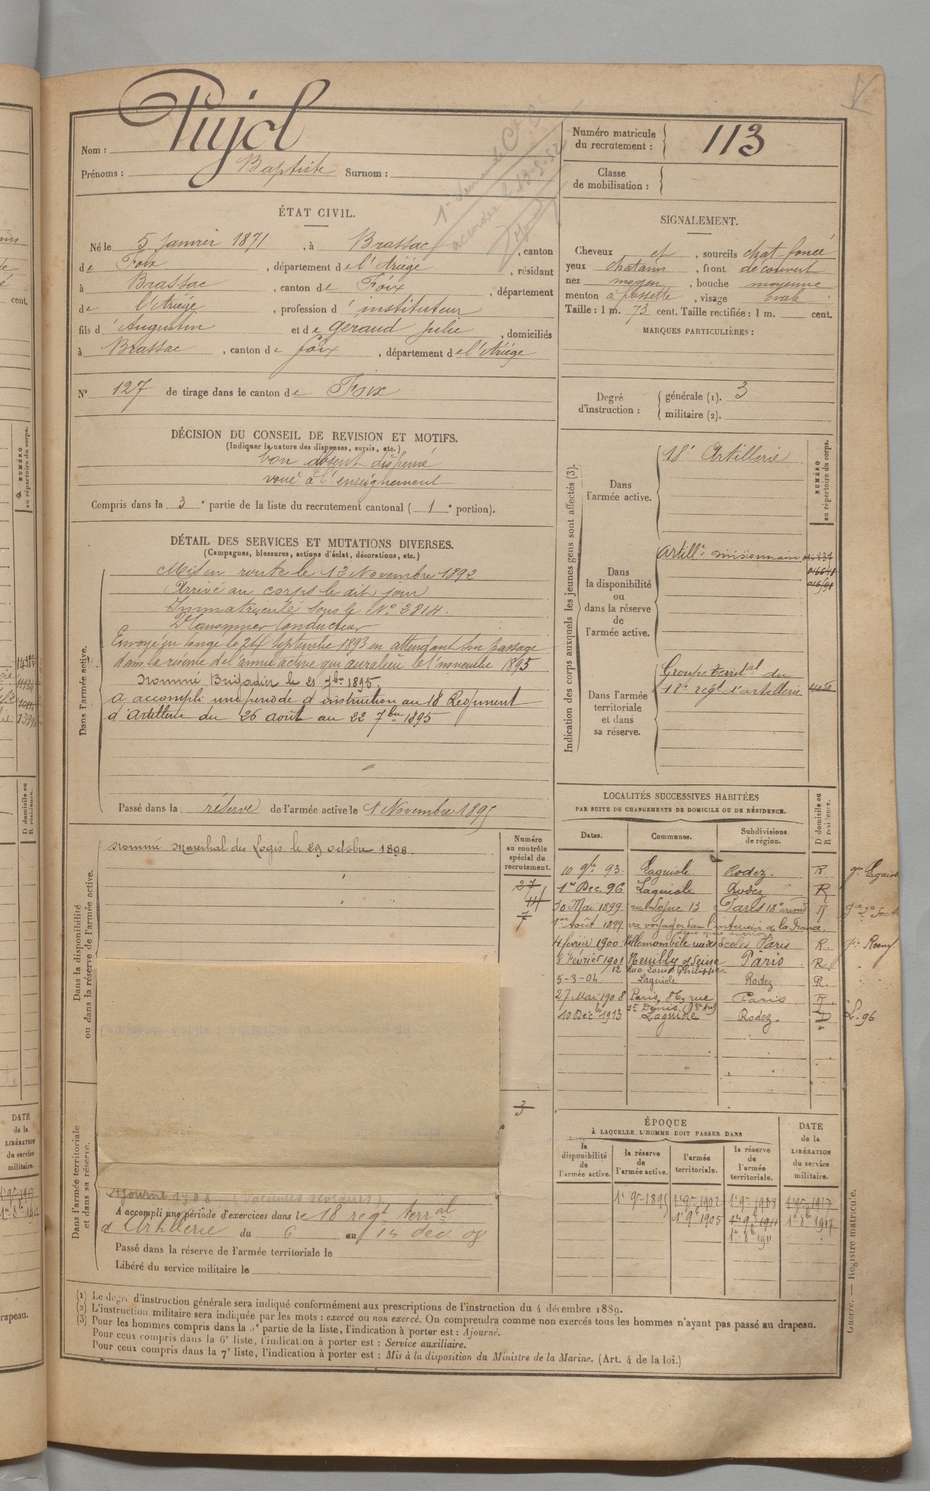 Pujol
Nom :
Prénoms : Baptiste Surnom :
Numéro matricule du recrutement : 113
Classe de mobilisation :
ÉTAT CIVIL.
Né le 5 Janvier 1871, à Brassac, canton
de Foix, département de l'Ariége, résidant
à Brassac, canton de Foix, département
de l'Ariége, profession d'instituteur
fils d'Augustin et de Geraud Julie, domiciliés
à Brassac, canton de Foix, département de l'Ariége
N° 127 de tirage dans le canton de Foix
SIGNALEMENT.
Cheveux et, sourcils chat. foncé
yeux chatains, front découvert
nez moyen, bouche moyenne
menton à fossette, visage ovale
Taille : 1 m. 73 cent. Taille rectifiée : 1 m. cent.
MARQUES PARTICULIÈRES :
Degré d'instruction : générale (1). 3
militaire (2).
DÉCISION DU CONSEIL DE REVISION ET MOTIFS.
(Indiquer la nature des dispenses, sursis, etc.)
bon absent dispensé
voué à l'enseignement
Compris dans la 3e partie de la liste du recrutement cantonal (1e portion).
DÉTAIL DES SERVICES ET MUTATIONS DIVERSES.
(Campagnes, blessures, actions d'éclat, décorations, etc.)
Dans l'armée active.
Mis en route le 12 Novembre 1892
Arrivé au corps le dit jour
Immatriculé sous le N° 3814.
2e Canonnier Conducteur
Envoyé en congé le 24 Septembre 1893 en attendant son passage
dans la réserve de l'armée active qui aura lieu le 1 novembre 1895
Nommé Brigadier le 21 7bre 1895
A accompli une période d'instruction au 18 Régiment
d'Artillerie du 26 août au 22 7bre 1895
Passé dans la réserve de l'armée active le 1 Novembre 1895
Indication des corps auxquels les jeunes gens sont affectés (3).
NUMÉRO au répertoire du corps.
Dans l'armée active. 18e Artillerie
Dans la disponibilité ou dans la réserve de l'armée active. Artillie divisionnaire
Dans l'armée territoriale et dans sa réserve. Groupe territal du
18e régt d'artillerie
Dans la disponibilité ou dans la réserve de l'armée active.
Nommé Maréchal des Logis le 29 octobre 1898.
Numéro au contrôle spécial du recrutement.
3
LOCALITÉS SUCCESSIVES HABITÉES
PAR SUITE DE CHANGEMENTS DE DOMICILE OU DE RÉSIDENCE.
Dates. Communes. Subdivisions de région. D domicile ou R résidence.
10 9bre 93. Laguiole Rodez. R
1er Dec. 96 Laguiole Rodez R
30 Mai 1899 Paris
1er Août 1899 en voyage dans l'intérieur de la France
4 février 1900 Villemomble rue des écoles Paris R.
8 Février 1901 Neuilly s/ Seine Paris R
12 Rue Louis Philippe
5-3-04 Laguiole Rodez R.
27 Mai 1908 Paris, 86, rue Paris R.
St Denis
10 Dec. 1913 Laguiole Rodez. D
ÉPOQUE
À LAQUELLE L'HOMME DOIT PASSER DANS
la disponibilité de l'armée active. la réserve de l'armée active. l'armée territoriale. la réserve de l'armée territoriale.
DATE de la LIBÉRATION du service militaire.
Dans l'armée territoriale et dans sa réserve.
Ajourné 1908 (vacances scolaires).
A accompli une période d'exercices dans le 18 régt terral
d'Artillerie du 6 au 14 déc 08
Passé dans la réserve de l'armée territoriale le
Libéré du service militaire le
(1) Le degré d'instruction générale sera indiqué conformément aux prescriptions de l'instruction du 4 décembre 1889.
(2) L'instruction militaire sera indiquée par les mots : exercé ou non exercé. On comprendra comme non exercés tous les hommes n'ayant pas passé au drapeau.
(3) Pour les hommes compris dans la 5e partie de la liste, l'indication à porter est : Ajourné.
Pour ceux compris dans la 6e liste, l'indication à porter est : Service auxiliaire.
Pour ceux compris dans la 7e liste, l'indication à porter est : Mis à la disposition du Ministre de la Marine. (Art. 4 de la loi.)
Guerre. — Registre matricule.